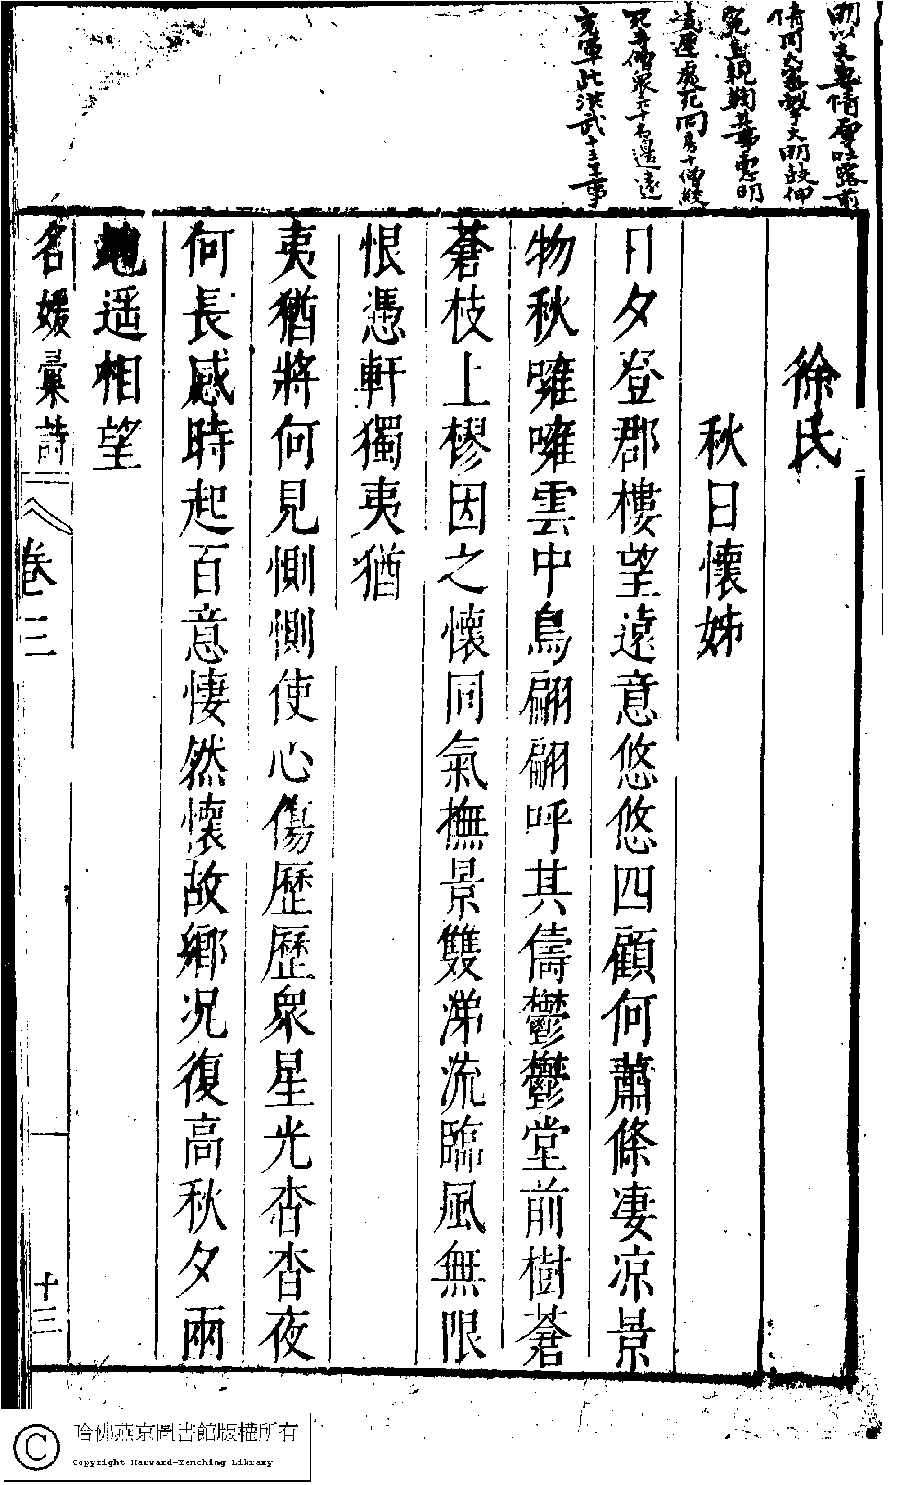 徐氏
秋日懷姊
日夕登郡樓望遠意悠悠四顧何蕭條凄凉景
物秋嗈嗈雲中鳥翩翩呼其儔鬱鬱堂前樹蒼
蒼枝上樛因之懷同氣撫景雙涕流臨風無限
恨憑軒獨夷猶
夷猶將何見惻惻使心傷歷歷衆星光杳杳夜
何長感時起百意悽然懷故鄉况復高秋夕兩
地遥相望
名媛彙詩
卷三
十三
充軍此洪武十三年事
哈佛燕京圖書館版權所有
Copyright Harvard-Yenching Library